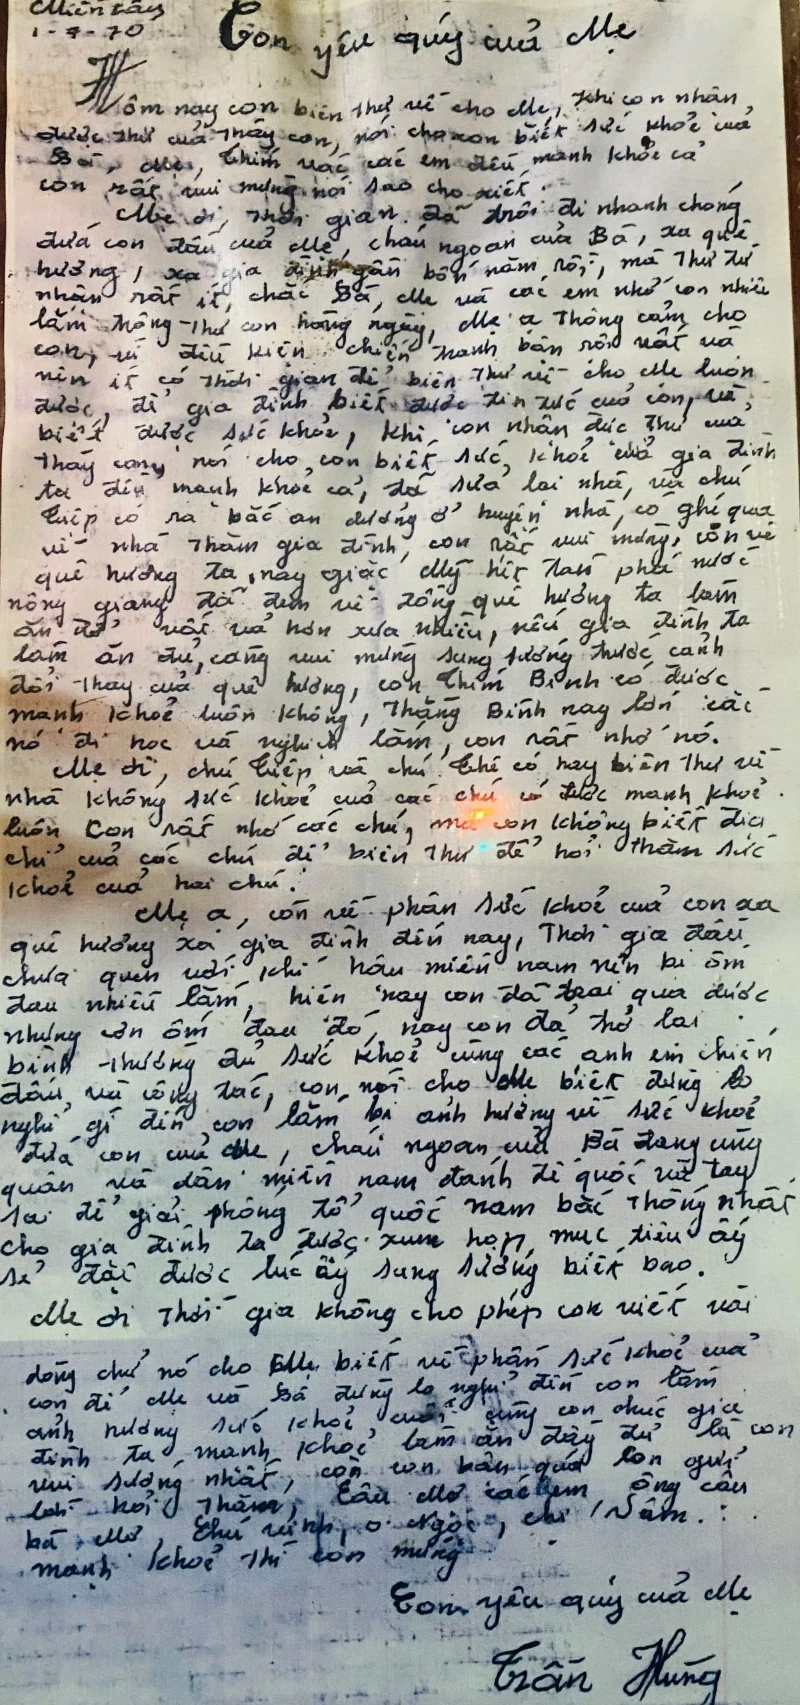 Miền tây
1-7-70
Con yêu quý của Mẹ
Hôm nay con biên thư về cho Mẹ, khi con nhận
được thư của thầy con, nói cho con biết sức khoẻ của
Bà, Mẹ, Thím và các em đều mạnh khoẻ cả
con rất vui mừng nói sao cho xiết.
Mẹ ơi, thời gian đã trôi đi nhanh chóng
đứa con đầu của Mẹ, cháu ngoan của Bà, xa quê
hương, xa gia đình gần bốn năm rồi, mà thư từ
nhận rất ít, chắc Bà, Mẹ và các em nhớ con nhiều
lắm trông thư con hàng ngày, Mẹ ạ thông cảm cho
con, vì điều kiện chiến tranh bận rộn vất vả
nên ít có thời gian để biên thư về cho Mẹ luôn
được, để gia đình biết được tin tức của con, và
biết được sức khoẻ, khi con nhân đức thư của
thầy con, nói cho con biết sức khoẻ của gia đình
ta đều mạnh khoẻ cả, đã sửa lại nhà, và chú
Tiệp có ra bắc an dưỡng ở huyện nhà, có ghé qua
về nhà thăm gia đình, con rất vui mừng, còn về
quê hương ta, nay giặc Mỹ hết tàn phá nước
nông giang đã đem về đồng quê hương ta làm
ăn đỡ vất vả hơn xưa nhiều, nếu gia đình ta
làm ăn đủ, càng vui mừng sung sướng trước cảnh
đổi thay của quê hương, còn Thím Bình có được
mạnh khoẻ luôn không, thằng Bình nay lớn
nó đi học và nghịch lắm, con rất nhớ nó.
Mẹ ơi, chú Tiệp và chú Thê có hay biên thư về
nhà không sức khoẻ của các chú có được mạnh khoẻ
luôn con rất nhớ các chú, mà con không biết địa
chỉ của các chú để biên thư để hỏi thăm sức
khoẻ của hai chú.
Mẹ ạ, còn về phần sức khoẻ của con xa
quê hương xa gia đình đến nay, thời gia đầu
chưa quen với khí hậu miền nam nên bị ốm
đau nhiều lắm, hiện nay con đã trải qua được
những cơn ốm đau đó, nay con đã trở lại
bình thường đủ sức khoẻ cùng các anh em chiến
đấu, và công tác, con nói cho Mẹ biết đừng lo
nghỉ gì đến con lắm bị ảnh hưởng về sức khoẻ
đứa con của Mẹ, cháu ngoan của Bà đang cùng
quân và dân miền nam đánh đế quốc và tay
sai để giải phóng tổ quốc nam bắc thống nhất
cho gia đình ta được xum họp, mục tiêu ấy
sẽ đạt được lúc ấy sung sướng biết bao.
Mẹ ơi thời gia không cho phép con viết vài
dòng chữ nó cho Mẹ biết về phần sức khoẻ của
con để Mẹ và Bà đừng lo nghỉ đến con lắm
ảnh hưởng sức khoẻ cuối cùng con chúc gia
đình ta mạnh khoẻ làm ăn đầy đủ là con
vui sướng nhất, còn con bán quà con gửi
lời hỏi thăm, Cậu Mợ các em ông cậu
bà Mợ, Chú Vinh, o Ngọc, chị Năm.
mạnh khoẻ thì con mừng
Con yêu quý của Mẹ
Trần Hùng